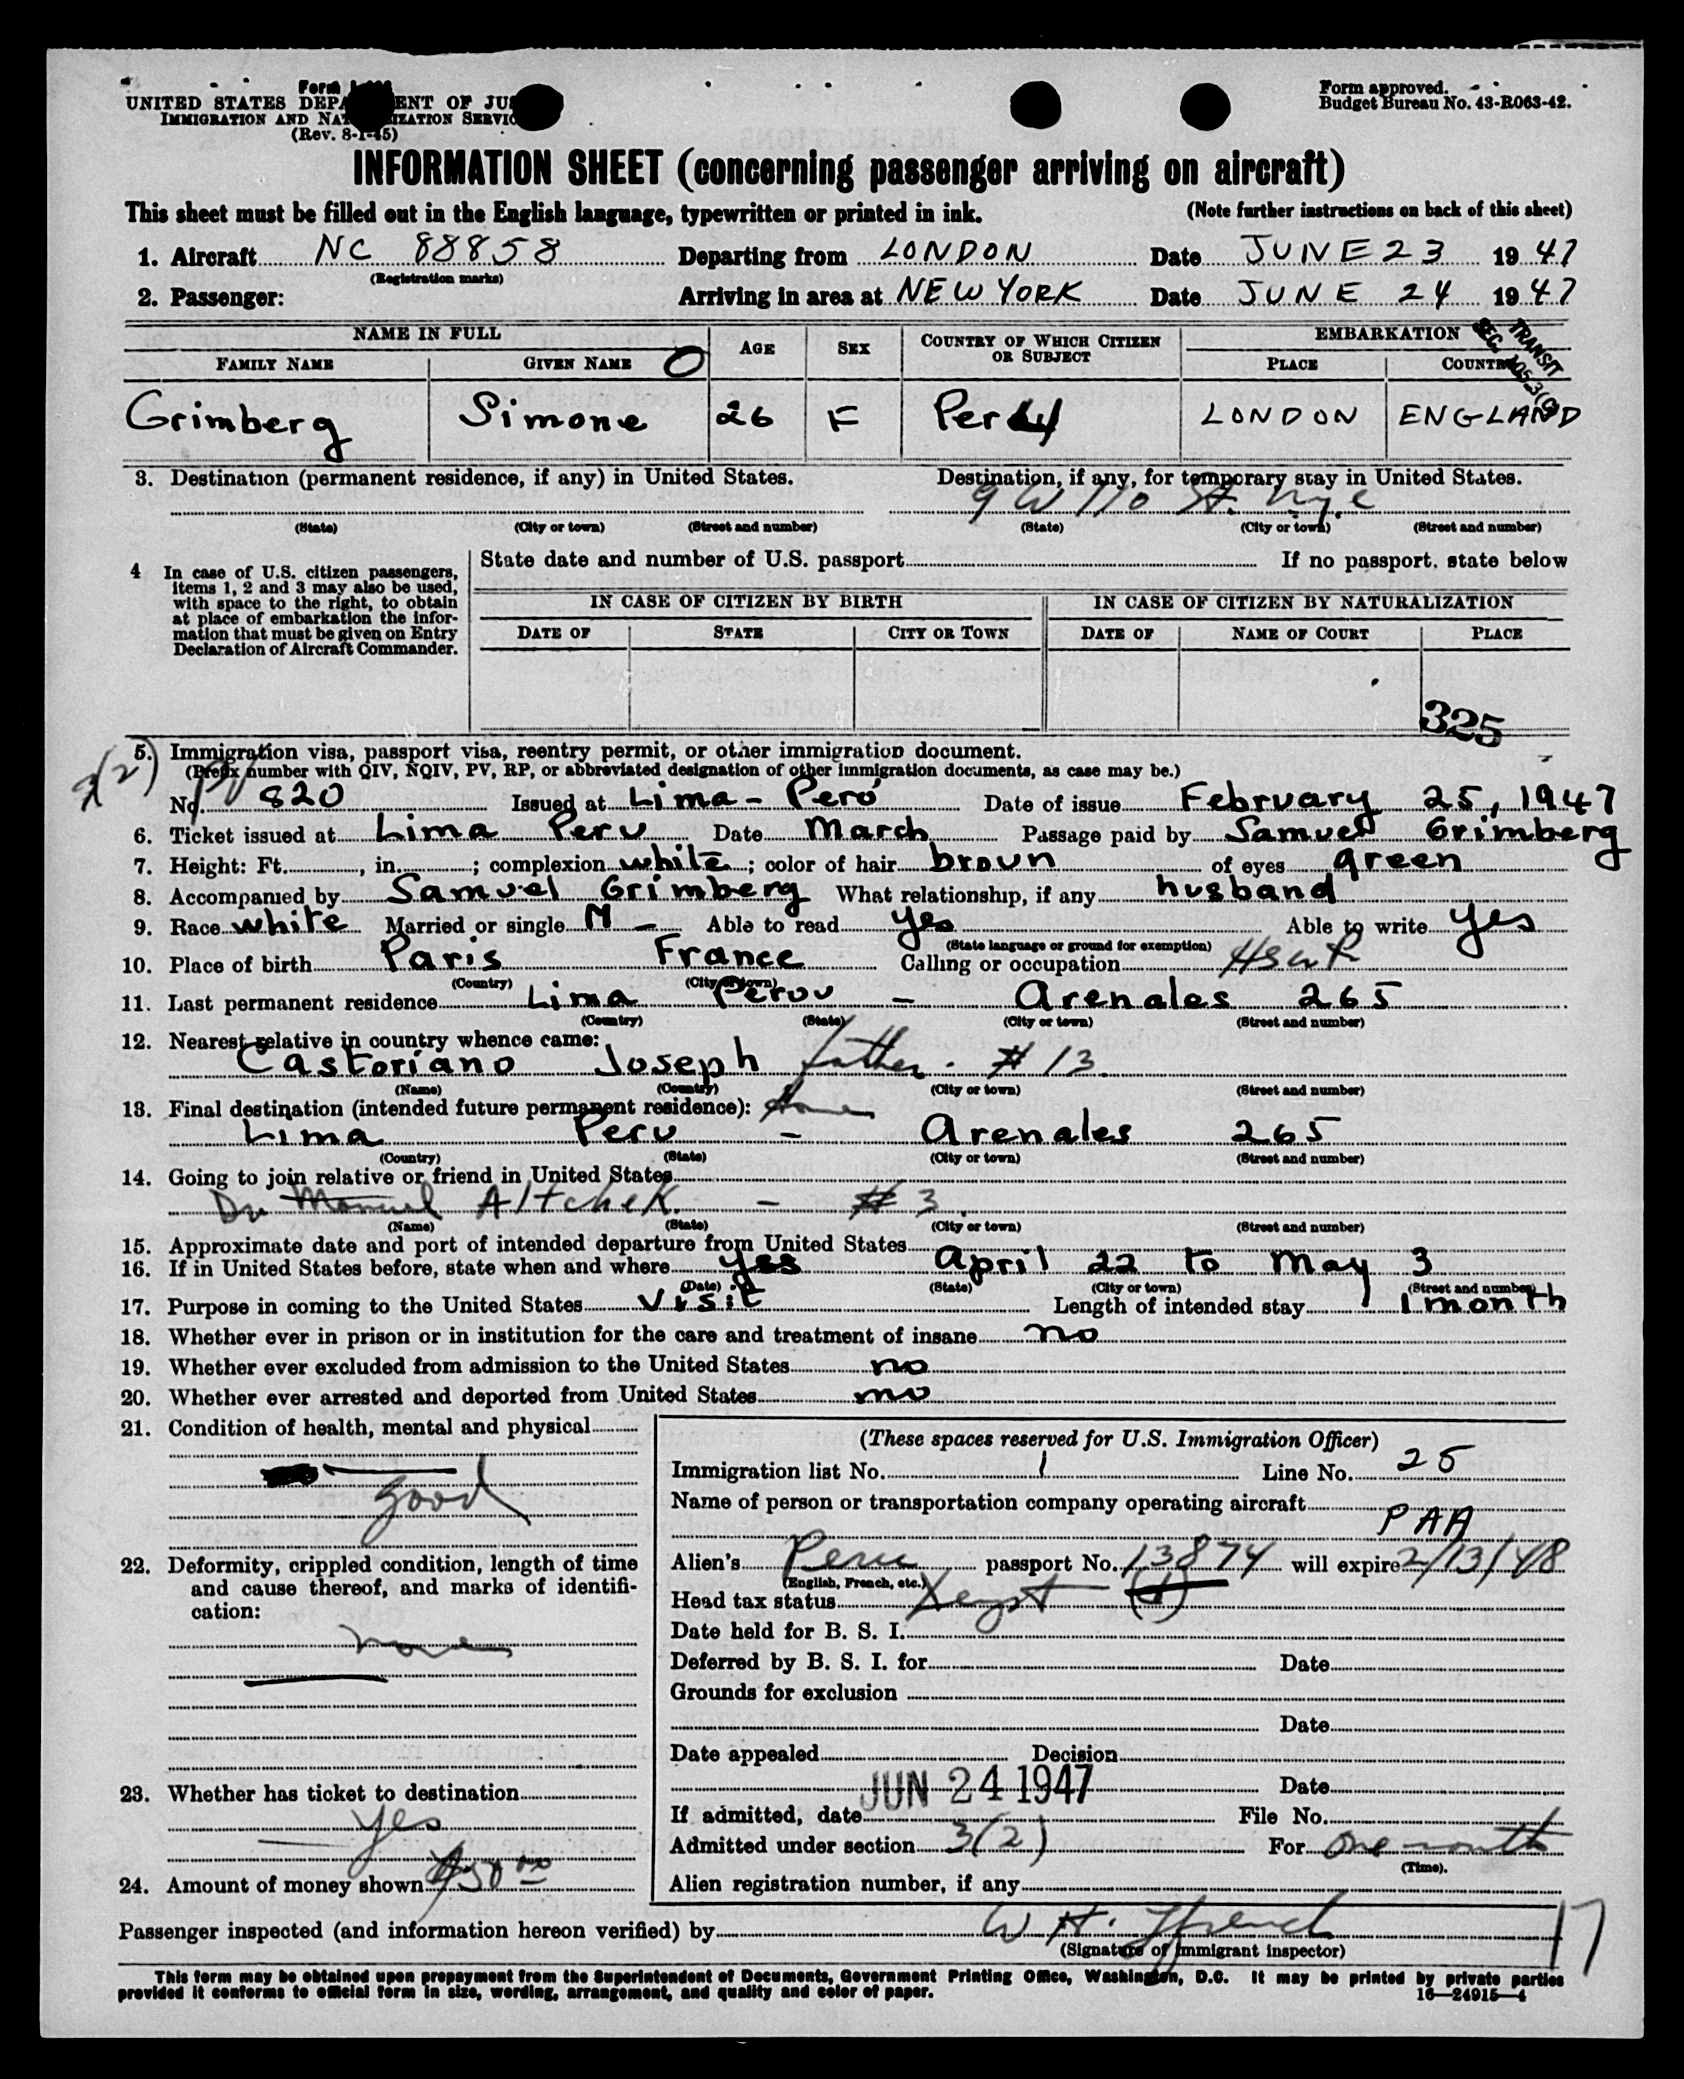 Form I-
UNITED STATES DEPA ENT OF JUS
IMMIGRATION AND NAT IZATION SERVIC
(Rev. 8-1-45)
Form approved.
Budget Bureau No. 43-R063-42.
INFORMATION SHEET (concerning passenger arriving on aircraft)
This sheet must be filled out in the English language, typewritten or printed in ink. (Note further instructions on back of this sheet)
1. Aircraft NC 88858 Departing from LONDON Date JUNE 23 1947
(Registration marks)
2. Passenger: Arriving in area at NEW YORK Date JUNE 24 1947
NAME IN FULL AGE SEX COUNTRY OF WHICH CITIZEN OR SUBJECT EMBARKATION
FAMILY NAME GIVEN NAME O PLACE COUNTRY
TRANSIT
SEC. 105.3(9)
Grimberg Simone 26 F Peru LONDON ENGLAND
3. Destination (permanent residence, if any) in United States. Destination, if any, for temporary stay in United States.
9 W 110 St. nyc
(State) (City or town) (Street and number) (State) (City or town) (Street and number)
4 In case of U.S. citizen passengers, items 1, 2 and 3 may also be used, with space to the right, to obtain at place of embarkation the information that must be given on Entry Declaration of Aircraft Commander.
State date and number of U.S. passport If no passport, state below
IN CASE OF CITIZEN BY BIRTH IN CASE OF CITIZEN BY NATURALIZATION
DATE OF STATE CITY OR TOWN DATE OF NAME OF COURT PLACE
325
3(2)
5. Immigration visa, passport visa, reentry permit, or other immigration document.
(Prefix number with QIV, NQIV, PV, RP, or abbreviated designation of other immigration documents, as case may be.)
No. PV 820 Issued at Lima - Perú Date of issue February 25, 1947
6. Ticket issued at Lima Peru Date March Passage paid by Samuel Grimberg
7. Height: Ft. , in. ; complexion white ; color of hair broun of eyes green
8. Accompanied by Samuel Grimberg What relationship, if any husband
9. Race white Married or single M - Able to read yes Able to write yes
(State language or ground for exemption)
10. Place of birth Paris France Calling or occupation Hswk
(Country) (City or town)
11. Last permanent residence Lima Perou - Arenales 265
(Country) (State) (City or town) (Street and number)
12. Nearest relative in country whence came:
Castoriano Joseph father - # 13
(Name) (Country) (City or town) (Street and number)
13. Final destination (intended future permanent residence): home
Lima Peru - Arenales 265
(Country) (State) (City or town) (Street and number)
14. Going to join relative or friend in United States
Dr Manuel Altchek. - # 3
(Name) (State) (City or town) (Street and number)
15. Approximate date and port of intended departure from United States
16. If in United States before, state when and where yes April 22 to May 3
(Date) (State) (City or town) (Street and number)
17. Purpose in coming to the United States visit Length of intended stay 1 month
18. Whether ever in prison or in institution for the care and treatment of insane no
19. Whether ever excluded from admission to the United States no
20. Whether ever arrested and deported from United States no
21. Condition of health, mental and physical
good
22. Deformity, crippled condition, length of time and cause thereof, and marks of identification:
none
23. Whether has ticket to destination
yes
24. Amount of money shown $50 00
(These spaces reserved for U.S. Immigration Officer)
Immigration list No. 1 Line No. 25
Name of person or transportation company operating aircraft
PAA
Alien's Peru passport No. 13874 will expire 2/13/48
(English, French, etc.)
Head tax status
Date held for B. S. I.
Deferred by B. S. I. for Date
Grounds for exclusion
Date
Date appealed Decision
Date
If admitted, date JUN 24 1947 File No.
Admitted under section 3(2) For One month
(Time).
Alien registration number, if any
Passenger inspected (and information hereon verified) by W H. Ffrench
(Signature of immigrant inspector)
17
This form may be obtained upon prepayment from the Superintendent of Documents, Government Printing Office, Washington, D.C. It may be printed by private parties
provided it conforms to official form in size, wording, arrangement, and quality and color of paper. 16—24915—4